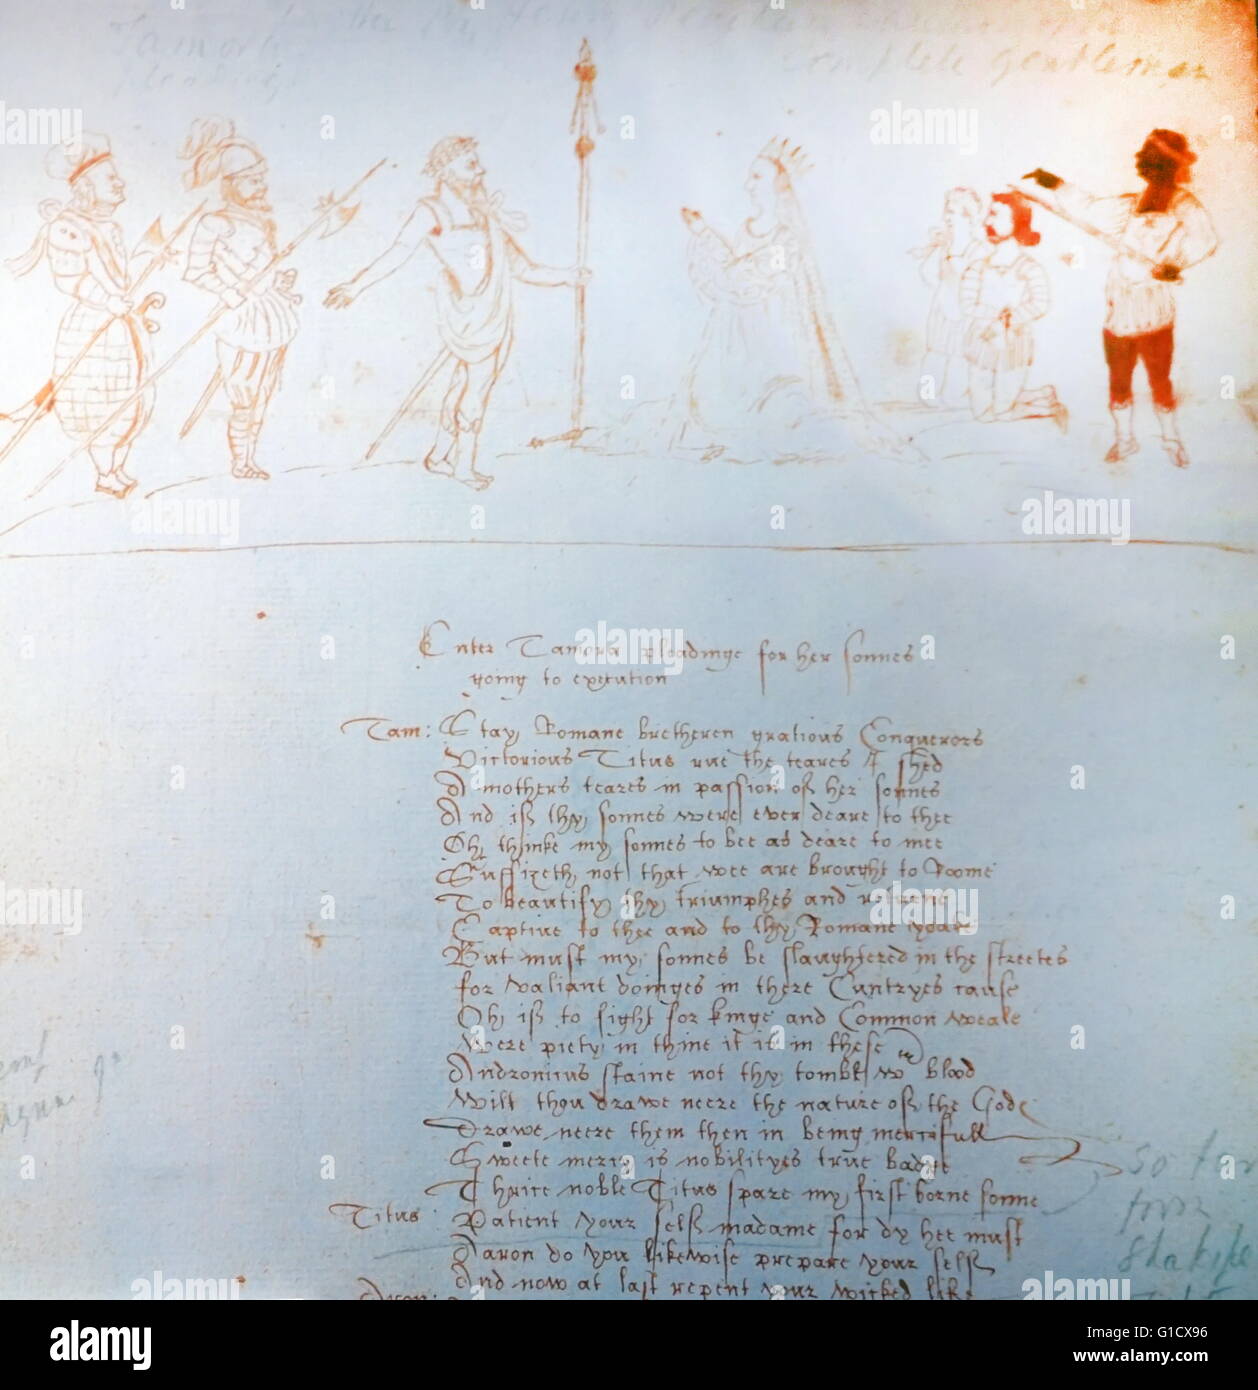 Tamora
pleadinge
complete gentleman
Enter Tamora pleadinge for her sonnes
going to execution
Tam: Stay Romane bretheren gratious Conquerors
Victorious Titus rue the teares I shed
A mothers teares in passion of her sonnes
And if thy sonnes were ever deare to thee
Oh thinke my sonnes to bee as deare to mee
Suffizeth not that wee are brought to Roome
To beautify thy triumphes and returne
Captiue to thee and to thy Romane yoake
But must my sonnes be slaughtered in the streetes
for valiant doinges in there Cuntryes cause
Oh if to fight for kinge and Common weale
Were piety in thine it is in these
Andronicus staine not thy tombe wth blood
Wilt thou drawe neere the nature of the Gods
Drawe neere them then in being mercifull
Sweete mercy is nobilityes true badge
Thrice noble Titus spare my first borne sonne
Titus: Patient your self madame for dy hee must
Aaron do you likewise prepare your self
And now at last repent your wicked life
so far
from
Shakspe
alamy
Image ID: G1CX96
www.alamy.com